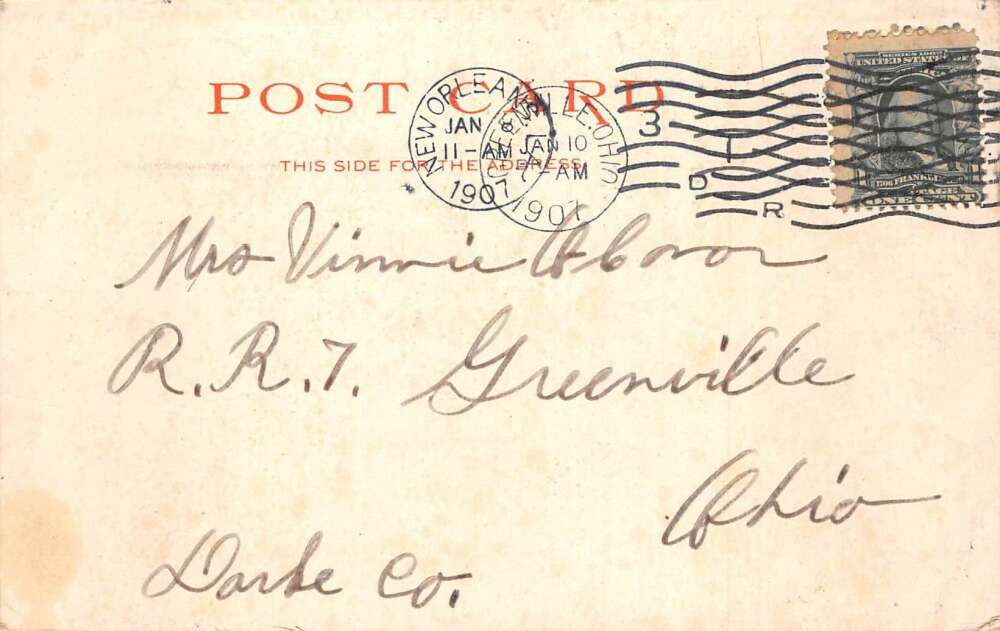 POST CARD
THIS SIDE FOR THE ADDRESS.
NEW ORLEANS
JAN 8
11-AM
1907
GREENVILLE, OHIO
JAN 10
7-AM
1907
3
D
R
SERIES 1902
UNITED STATES OF
FRANKLIN
ONE CENT
Mrs Vinnie
R. R. 7. Greenville
Ohio
Darke Co.